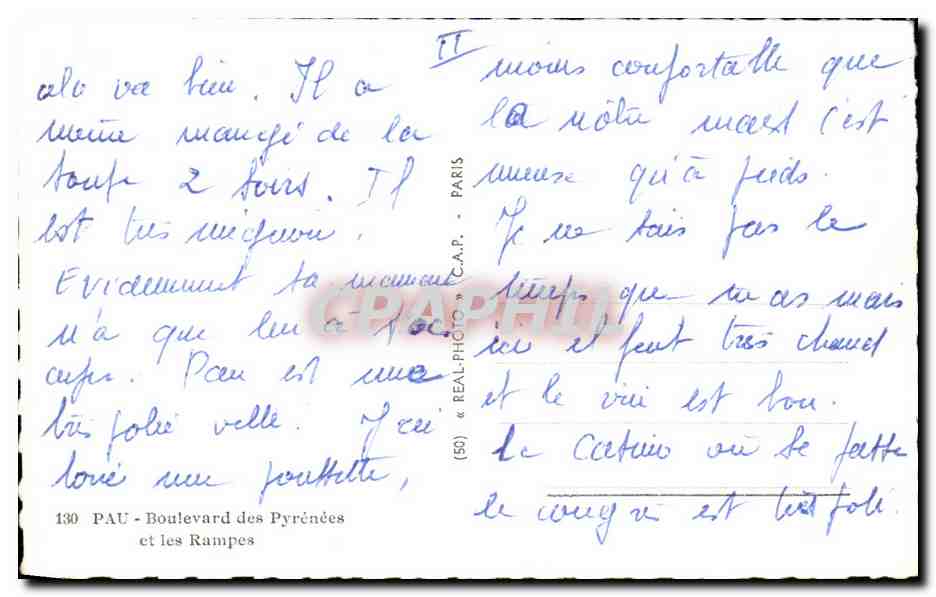 II
alo va bien. Il a
même mangé de la
soupe 2 soirs. Il
est très mignon.
Evidemment sa maman
n'a que lui à
Pau est une
très jolie ville. J'ai
loué une poussette,
130 PAU - Boulevard des Pyrénées
et les Rampes
(50) « REAL-PHOTO » C.A.P. - PARIS
CPAPHIL
moins confortable que
la nôtre mais c'est
mieux qu'à pieds.
Je ne sais pas le
temps que tu as mais
ici il fait très chaud
et le vin est bon.
Le Casino où se passe
le congrès est très joli.